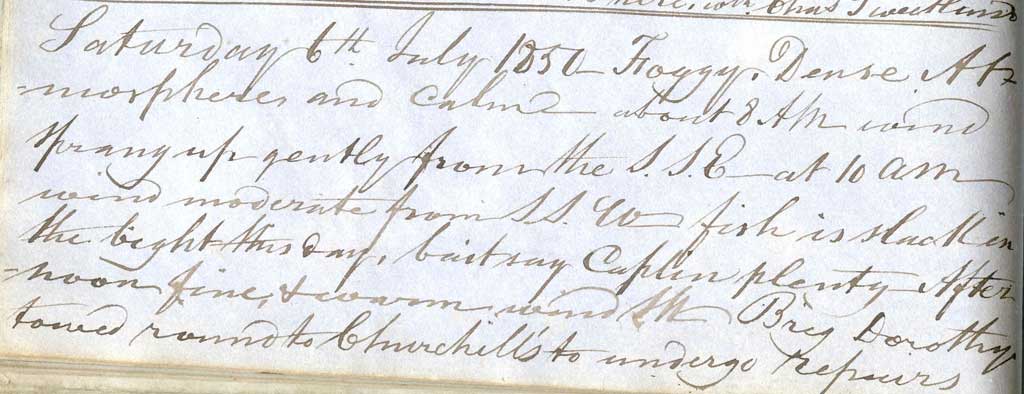 here, wr. Chas Sweetland
Saturday 6th July 1850 Foggy, Dense At=
=mospheres and Calm about 8 AM wind
sprang up gently from the S.S.E at 10 am
wind moderate from S.S.W fish is slack in
the bight this day, bait say Caplin plenty After
=noon fine, & warm wind Brig Dorothy
towed round to Churchill's to undergo repairs